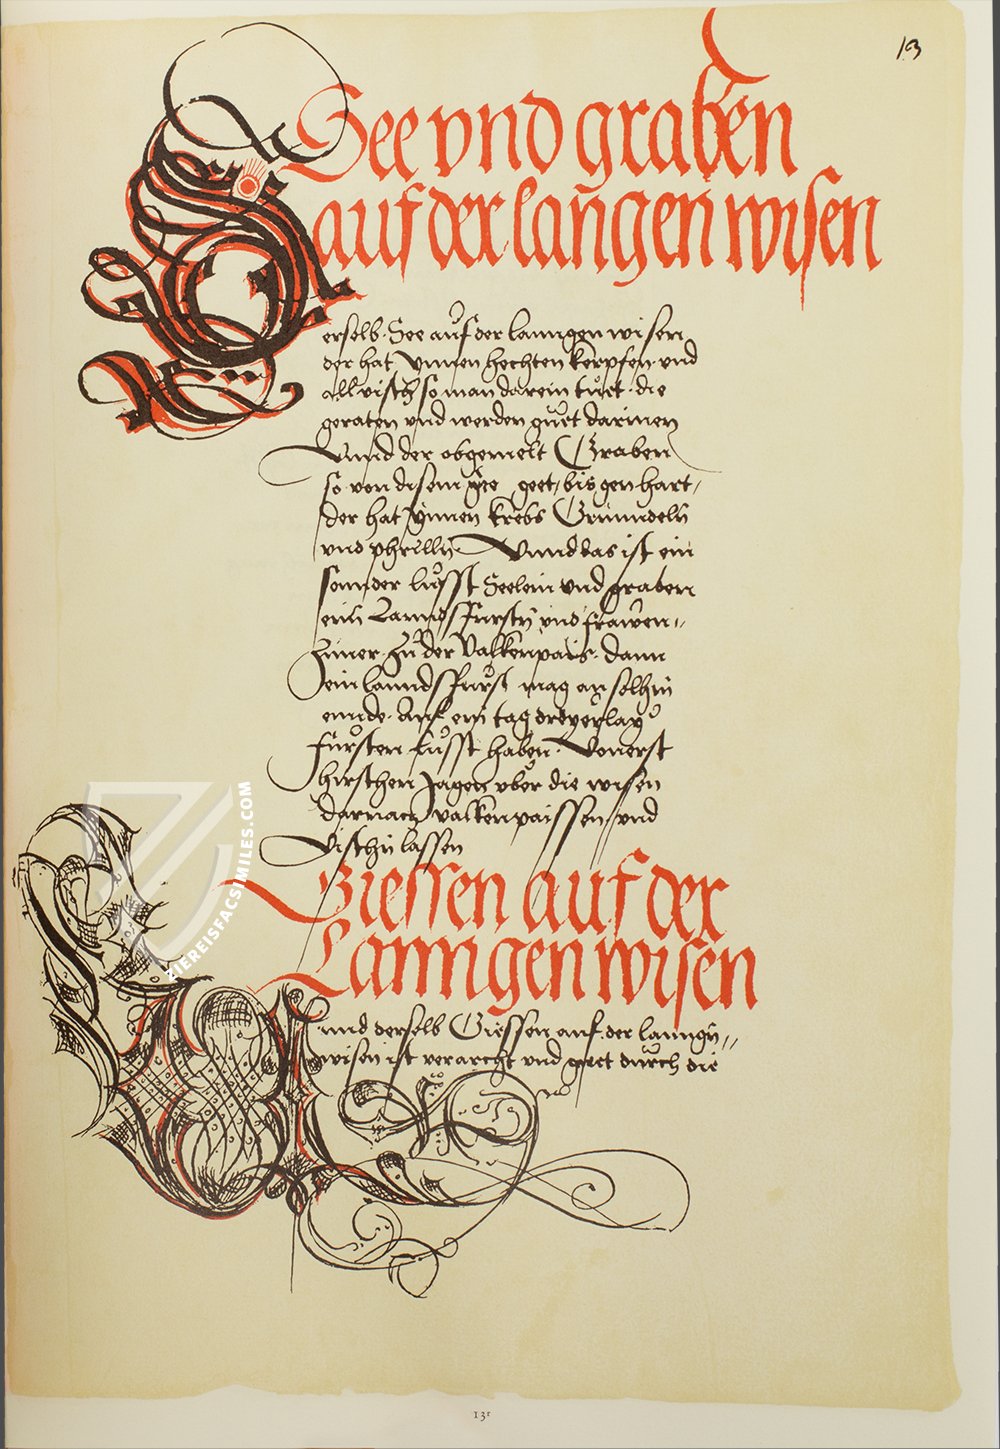 13
See vnd graben
auf der lanngen wisen
Derselb See auf der lanngen wisen
der hat ynnen hechten kerpfen vnd
all visch so man darein tuet die
geraten vnd werden guet darinnen
Vnnd der obgemelt Graben
so von disem See geet, bis gen hart,
der hat ynnen krebs Grunndeln
vnd phrilln Vnnd das ist ein
sonnder lusst Seelein vnd graben
eins Lanndsfursten vnd frawen
zimer zu der Valkenpais dann
ein lanndsfurst mag an solhem
ennde Auf ein tag dreyerlay
fursten lusst haben Vonerst
hirschen Jagen vber die wisen
darnach valkenpaissen vnd
vischn lassen
Giessen auf der
Lanngen wisen
Vnnd derselb Giessen auf der lanngn
wisen ist verarcht vnd geet durch die
ZIEREISFACSIMILES.COM
13r